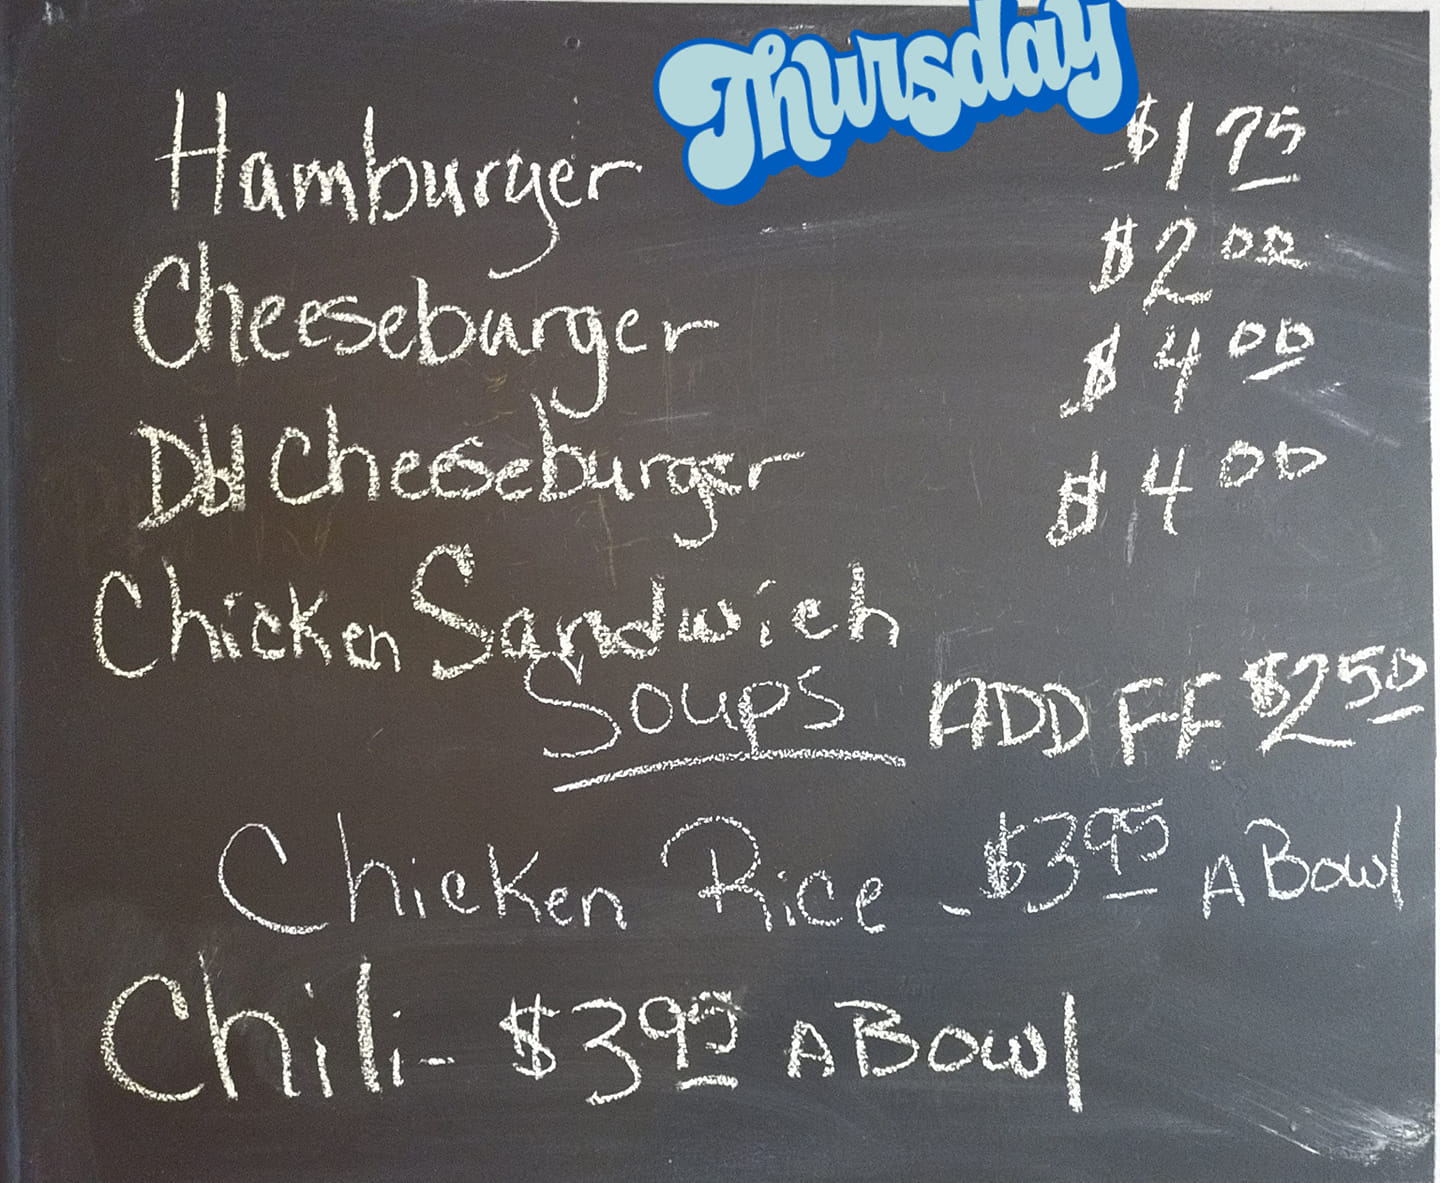 Thursday
Hamburger $1.75
Cheeseburger $2.00
Dbl Cheeseburger $4.00
Chicken Sandwich $4.00
Soups ADD FF $2.50
Chicken Rice - $3.95 A Bowl
Chili - $3.95 A Bowl